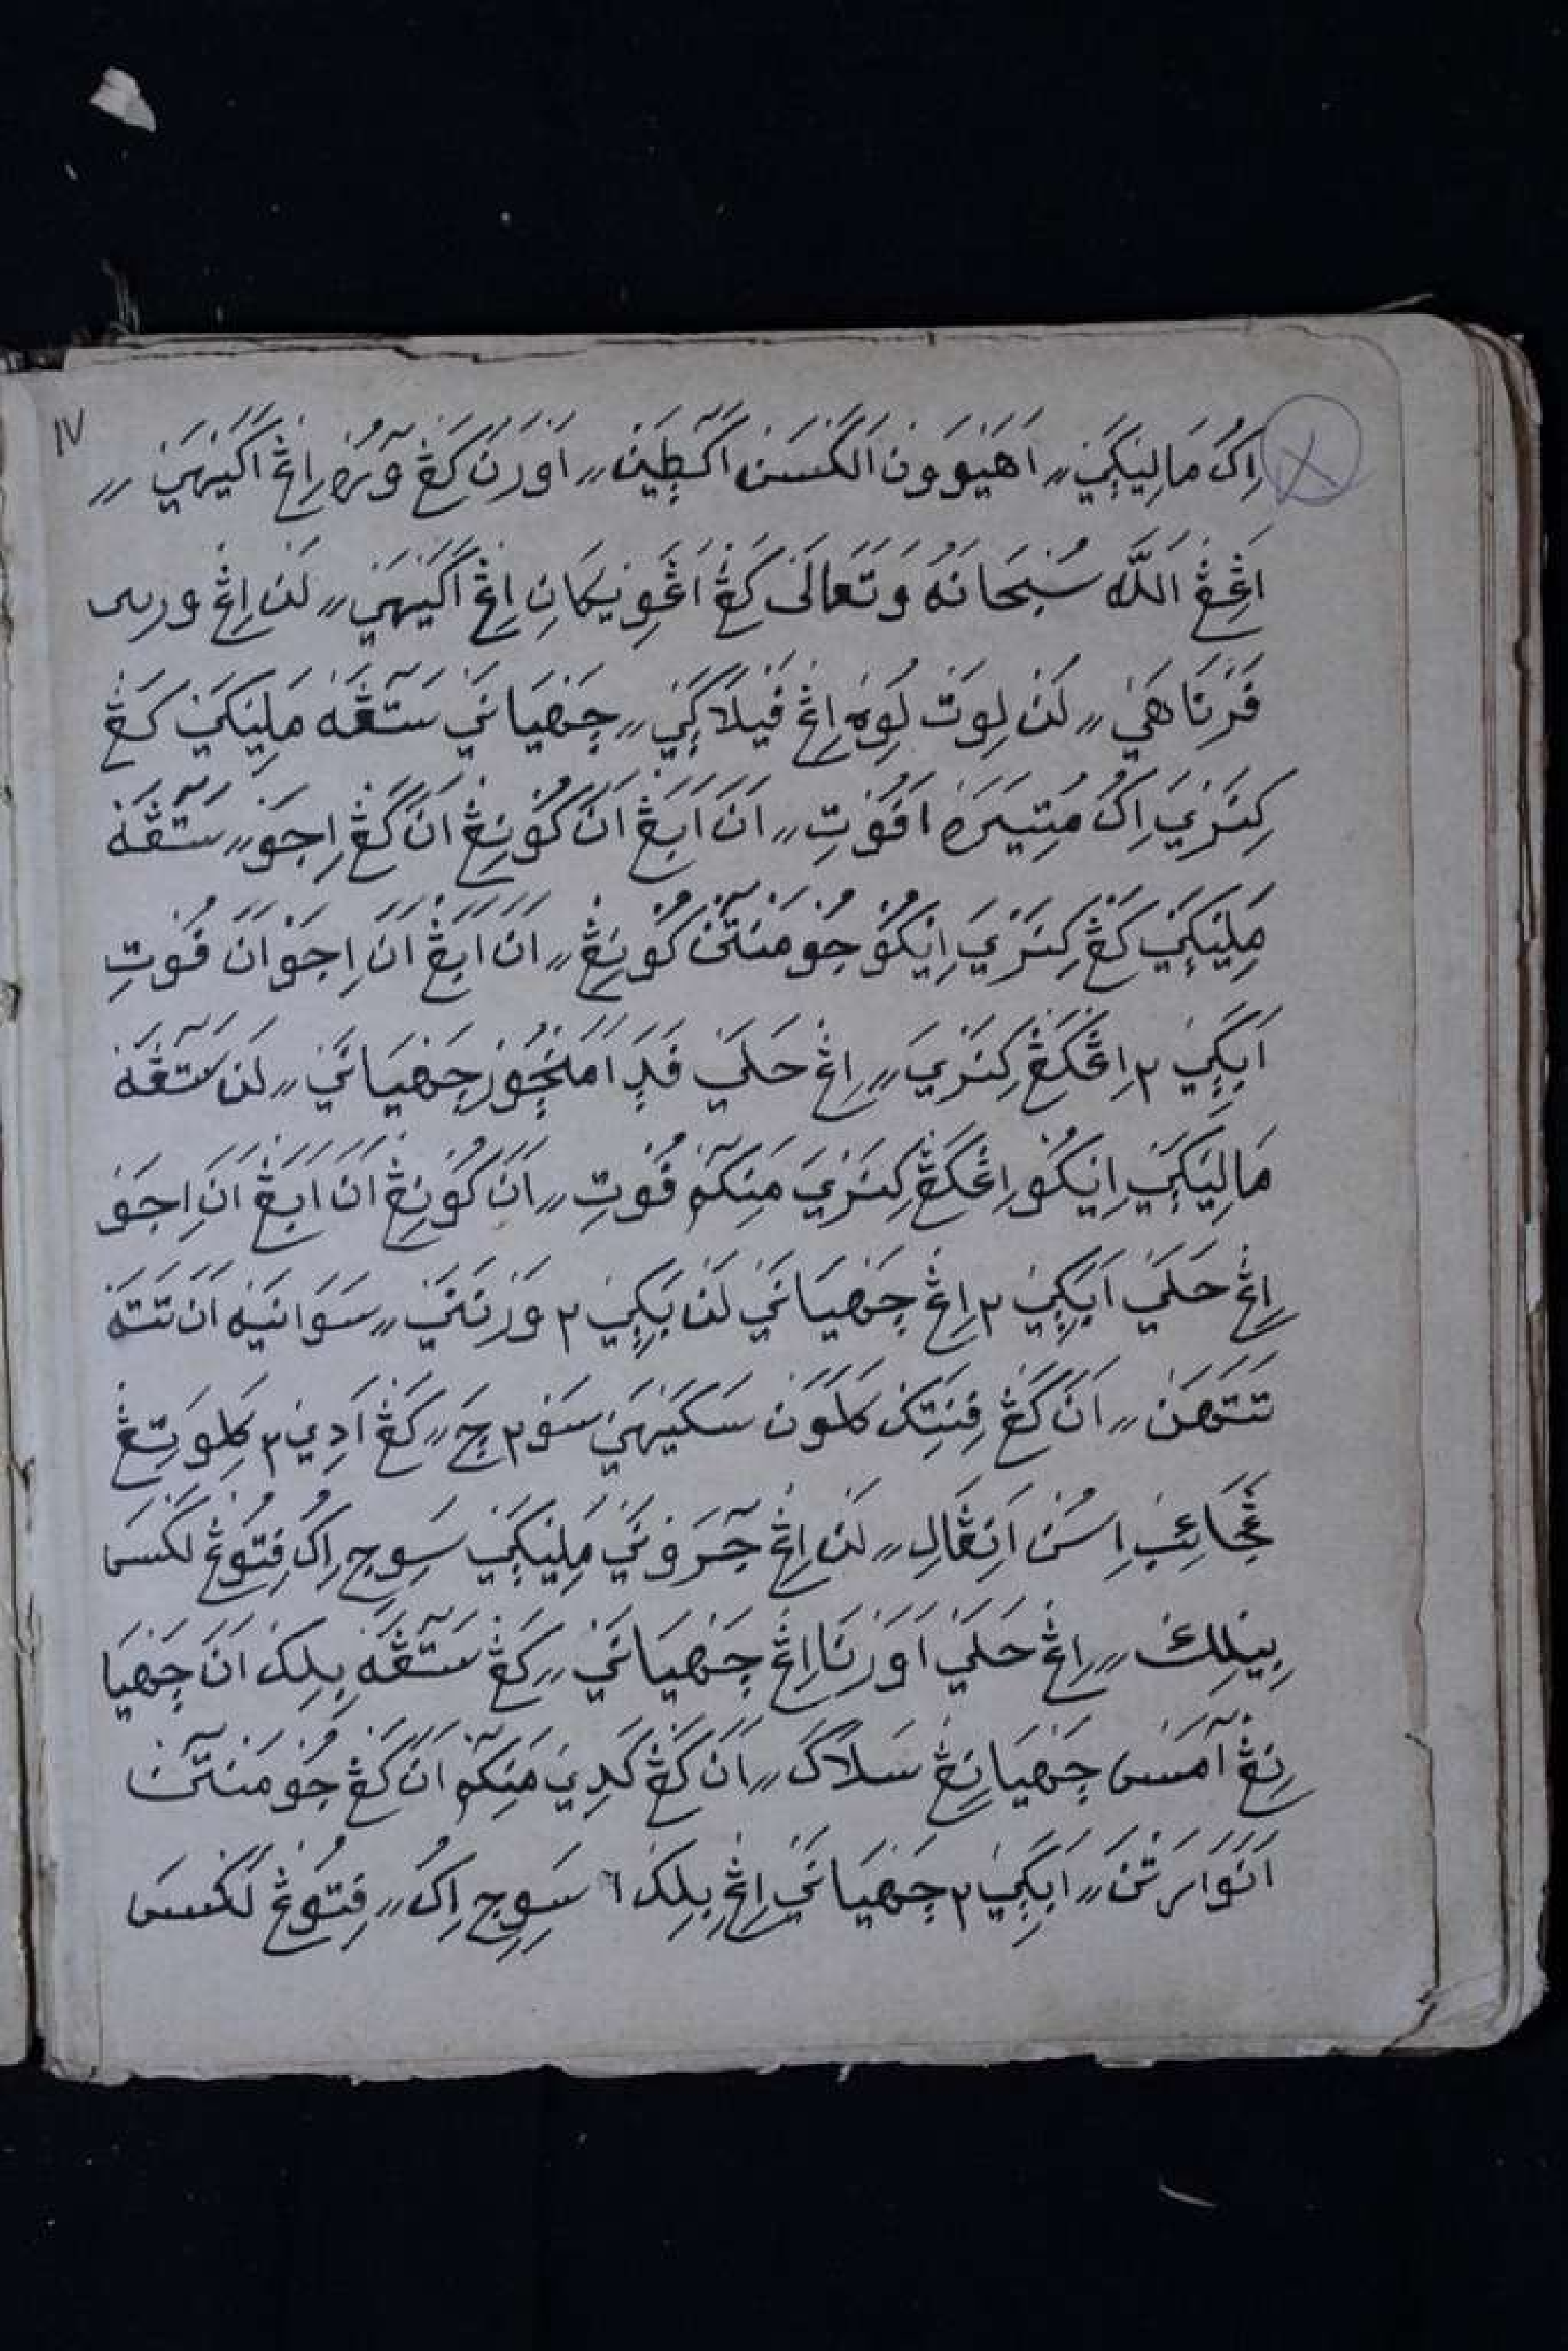 ١٧
اِكُ مَالِيَكَيَ ⹁⹁ اَهَيَوَوَنَ الَكَسَنَ اَكَطِيَنَ ⹁⹁ اَوَرَنَ كَڠ وٓرُه اِڠ اَكَيَهَيَ ⹁⹁
اَڠِڠ اللّٰه سُبْحَانَهُ وَتَعَالَى كَڠ اَڠَوِيكَانِ اِڠ اَكَيَهَيَ ⹁⹁ لَنَ اِڠ ورى
فَرَنَاهَيَ ⹁⹁ لَنَ لِوَتَ لُوِهَ اِڠ فَيَلَاكَيَ ⹁⹁ جَهَيَانَيَ سَتَٓڠَه مَلَيَكَيَ كَڠ
كِنَرَيَ اِكُ مُتِيَرَه اَفُوَتِ ⹁⹁ اَنَ اَبَڠ اَنَ كُوَنِڠ اَنَ كَڠ اِجَوَ ⹁⹁ سَتَٓڠَه
مَلَيَكَيَ كَڠ كِنَرَيَ اِيَكُوَ جُوَمَنَتَٓنَ كُوَنِڠ ⹁⹁ اَنَ اَبَڠ اَنَ اِجَوَ اَنَ فُوَتِ
اَبَكَيَ ٢ اِڠكَڠ كِنَرَيَ ⹁⹁ اِڠ حَلَيَ فَدَ اَمَنْچُوَرَ جَهَيَانَيَ ⹁⹁ لَنَ سَتَٓڠَه
مَالِيَكَيَ اِيَكُوَ اِڠكَڠ كِنَرَيَ مَنِكَمٓ فُوَتِ ⹁⹁ اَنَ كُوَنِڠ اَنَ اَبَڠ اَنَ اِجَوَ
اِڠ حَلَيَ اَبَكَيَ ٢ اِڠ جَهَيَانَيَ لَنَ بَكَيَ ٢ وَرَنَنَيَ ⹁⹁ سَوَانَيَه اَنَ تَتَه
تَتَهَنَ ⹁⹁ اَنَ كَڠ فِنَتِكَ كَلَوَنَ سَكَيَهَيَ سَوَ ٢ جَ ⹁⹁ كَڠ اَدِيَ ٢ كَلِوَتِڠ
عَجَائِب اِسُنَ اَنِڠَالِ ⹁⹁ لَنَ اِڠ جَٓرَوَنَيَ مَلَيَكَيَ سَوِجِ اِكُ فِتُوَڠ لَكَسَ
بِيَلِك ⹁⹁ اِڠ حَلَيَ اَوَرَنَا اِڠ جَهَيَانَيَ ⹁⹁ كَڠ سَتَٓڠَه بِلِكَ اَنَ جَهَيَا
نِڠ آمَس جَهَيَانِڠ سَلَاكَ ⹁⹁ اَنَ كَڠ كَدِيَ مَنِكَمٓ اَنَ كَڠ جُوَمَنَتَٓنَ
اَنَوَارَتَنَ ⹁⹁ اَبَكَيَ ٢ جَهَيَانَيَ اِڠ بِلِكَ ٢ سَوِجِ اِكُ ⹁⹁ فِتُوَڠ لَكَسَ